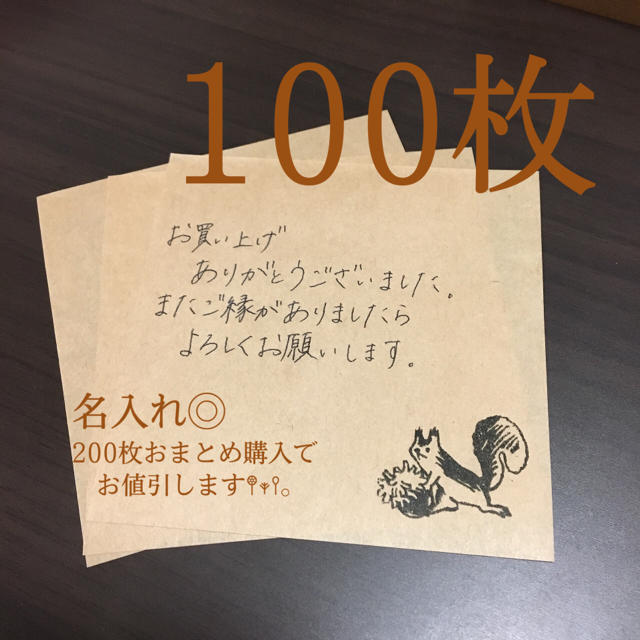 100枚
お買い上げ
ありがとうございました。
またご縁がありましたら
よろしくお願いします。
名入れ◎
200枚おまとめ購入で
お値引します